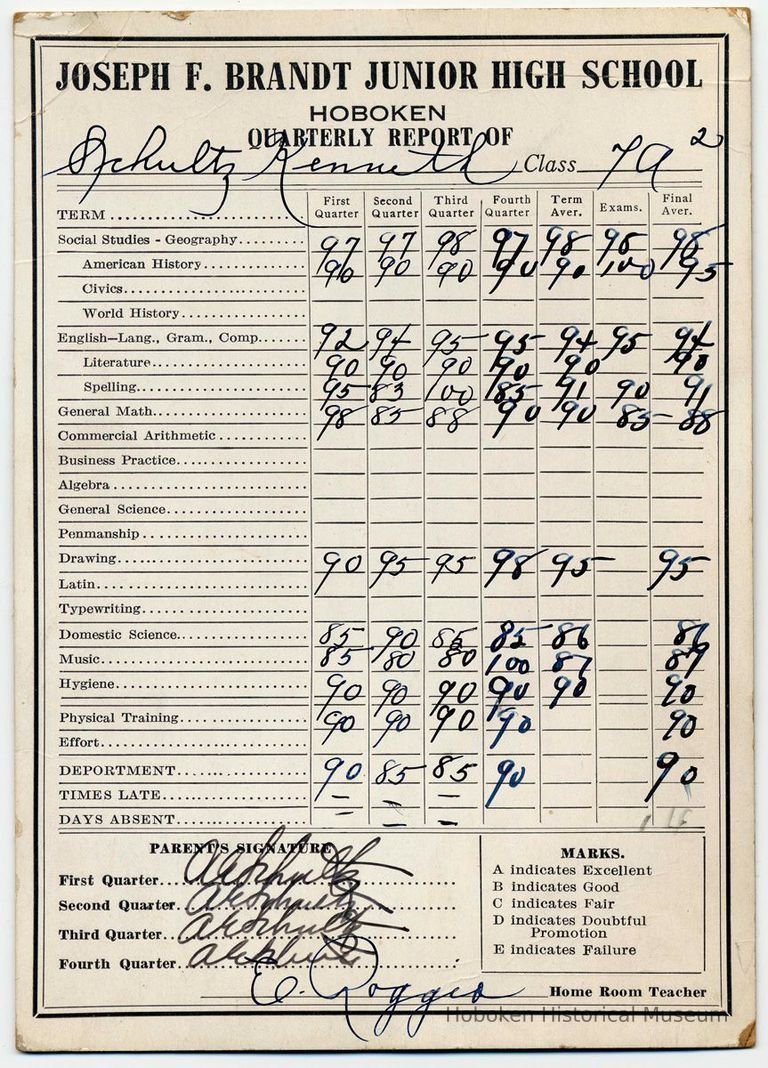 JOSEPH F. BRANDT JUNIOR HIGH SCHOOL
HOBOKEN
QUARTERLY REPORT OF
Schultz Kenneth Class 7A 2
TERM First Quarter Second Quarter Third Quarter Fourth Quarter Term Aver. Exams. Final Aver.
Social Studies - Geography 97 97 98 97 98 98
American History 90 90 90 90 90 100 95
Civics
World History
English—Lang., Gram., Comp. 92 94 95 95 94 95 94
Literature 90 90 90 90 90 90
Spelling 95 83 100 85 91 90 91
General Math. 98 85 88 90 90 85 88
Commercial Arithmetic
Business Practice
Algebra
General Science
Penmanship
Drawing 90 95 95 98 95 95
Latin
Typewriting
Domestic Science 85 90 85 85 86 86
Music 85 80 80 100 87 87
Hygiene 90 90 90 90 90 90
Physical Training 90 90 90 90 90
Effort
DEPORTMENT 90 85 85 90 90
TIMES LATE — — —
DAYS ABSENT — — —
PARENT'S SIGNATURE
First Quarter
Second Quarter
Third Quarter
Fourth Quarter
MARKS.
A indicates Excellent
B indicates Good
C indicates Fair
D indicates Doubtful
Promotion
E indicates Failure
Home Room Teacher
Hoboken Historical Museum